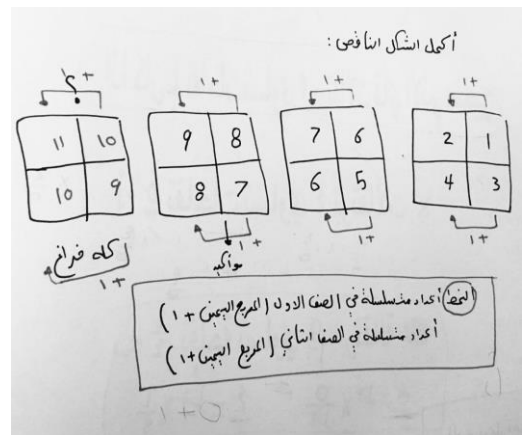 أكمل الشكل الناقص :
+1 +1 +1 +؟
2 1
4 3
7 6
6 5
9 8
8 7
11 10
10 9
+1 +1 +1 +1
النمط أعداد متسلسلة في الصف الاول (المربع اليمين + 1)
أعداد متسلسلة في الصف الثاني (المربع اليمين +1)